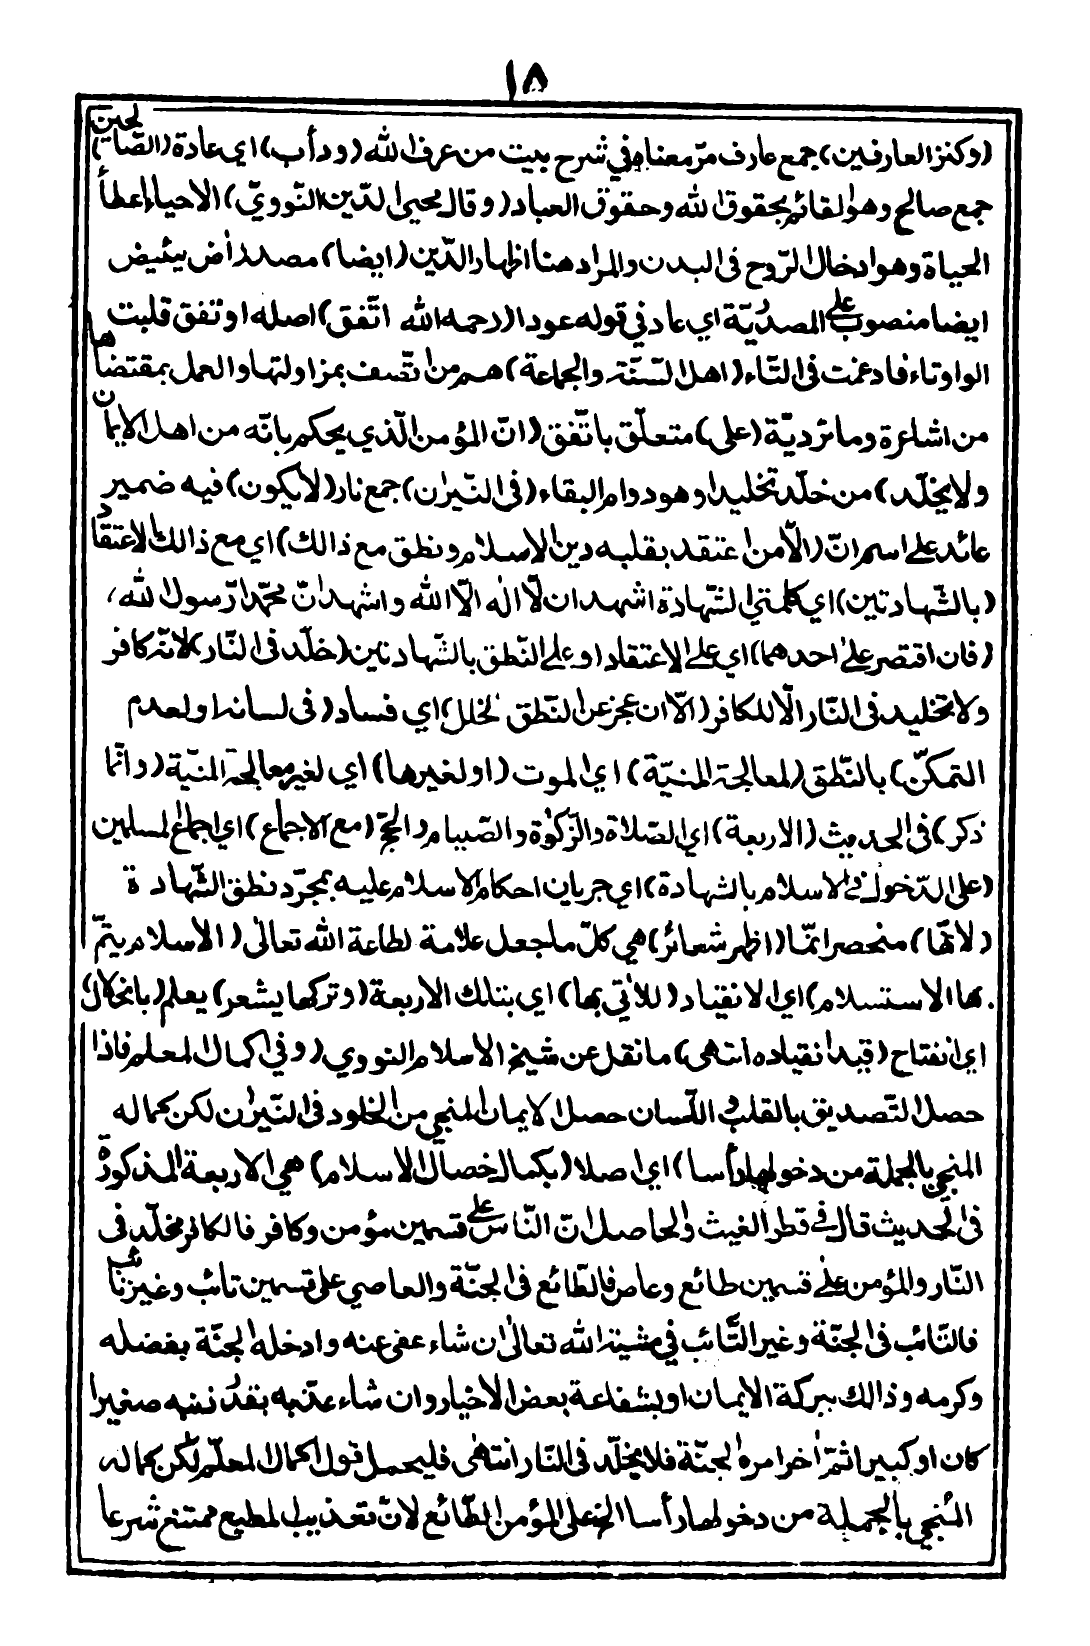 ١٥
(وكنز العارفين) جمع عارف مرّ معناه في شرح بيت من عرف الله (ودأب) اي عادة (الصّالحين)
جمع صالح وهو القائم بحقوق الله وحقوق العباد (وقال محيى الدّين النّوويّ) الاحياء اعطاء
الحياة وهو ادخال الرّوح فى البدن والمراد هنا اظهار الدّين (ايضا) مصدر اٰض يئيض
ايضا منصوب على المصدريّة اي عاد في قوله عودا (رحمه الله اتّفق) اصله اوتفق قلبت
الواو تاء فادغمت فى التّاء (اهل السّنّة والجماعة) هم من اتّصف بمزاولتها والعمل بمقتضاها
من اشاعرة وما تريديّة (على) متعلّق باتّفق (انّ المؤمن الّذي يحكم بانّه من اهل الايمان
ولا يخلّد) من خلّد تخليدا وهو دوام البقاء (فى النّيران) جمع نار (لا يكون) فيه ضمير
عائد على اسم انّ (الاّ من اعتقد بقلبه دين الاسلام ونطق مع ذالك) اي مع ذالك الاعتقاد
(بالشّهادتين) اي كلمتي الشّهادة اشهد ان لاّ اله الاّ الله واشهد انّ محمّدا رّسول الله،
(فان اقتصر على احدهما) اي على الاعتقاد او على النّطق بالشّهادتين (خلّد فى النّار) لانّه كافر
ولا تخليد فى النّار الاّ للكافر (الاّ ان عجز عن النّطق لخلل) اي فساد (فى لسانه او لعدم
التمكّن) بالنّطق (لمعالجة المنيّة) اي الموت (او لغيرها) اي لغير معالجة المنيّة (وانّما
ذكر) فى الحديث (الاربعة) اي الصّلاة والزّكوة والصّيام والحجّ (مع الاجماع) اي اجماع المسلمين
(على الدّخول فى الاسلام بالشهادة) اي جريان احكام الاسلام عليه بمجرّد نطق الشّهادة
(لانّها) منحصر انّما (اظهر شعائر) هي كلّ ما جعل علامة لطاعة الله تعالى (الاسلام ويتمّ
بها الاستسلام) اي الانقياد (للاٰتي بها) اي بتلك الاربعة (وتركها يشعر) يعلم (بانحلال)
اي انفتاح (قيد انقياده انتهى) ما نقل عن شيخ الاسلام النووي (وفى اكمال المعلم فاذا
حصل التّصديق بالقلب و اللّسان حصل الايمان المنجي من الخلود فى النّيران لكن كماله
المنجي بالجملة من دخولها رأسا) اي اصلا (بكمال خصال الاسلام) هي الاربعة المذكورة
فى الحديث قال في قطر الغيث والحاصل انّ النّاس على قسمين مؤمن وكافر فالكافر مخلّد فى
النّار والمؤمن على قسمين طائع وعاص فالطّائع فى الجنّة والعاصي على قسمين تائب وغير تائب
فالتّائب فى الجنّة وغير التّائب في مشيئة الله تعالى ان شاء عفى عنه وادخله الجنّة بفضله
وكرمه وذالك ببركة الايمان او بشفاعة بعض الاخيار وان شاء عذّبه بقدر ذنبه صغيرا
كان او كبيرا ثمّ اٰخر امره الجنّة فلا يخلّد فى النّار انتهى فليحمل قول اكمال المعلّم لكن كماله
المُنجي بالجملة من دخولها رأسا الخ على المؤمن الطّائع لانّ تعذيب المطيع ممتنع شرعا